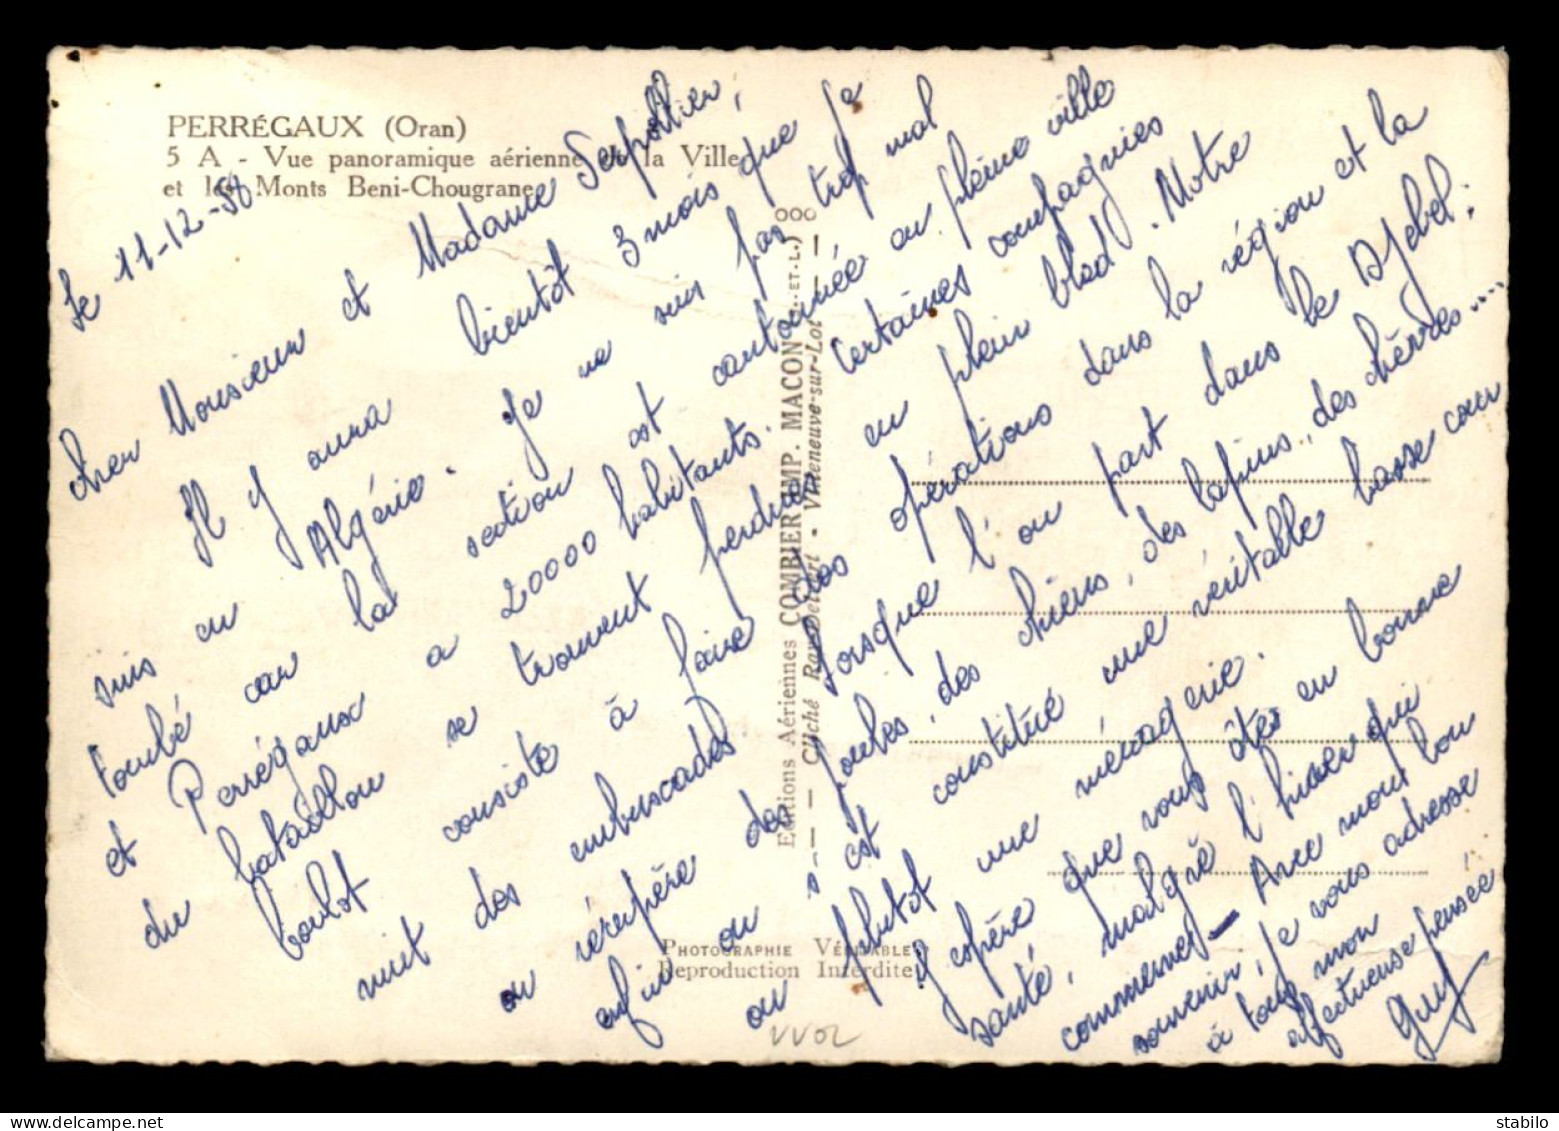 PERRÉGAUX (Oran)
5 A - Vue panoramique aérienne de la Ville
et les Monts Beni-Chougrane
Le 11-12-56
Cher Monsieur et Madame
Il y aura bientôt 3 mois que je
suis en Algérie. Je ne suis pas trop mal
tombé car la section est cantonnée en pleine ville
et Perrégaux a 20000 habitants. Certaines compagnies
du bataillon se trouvent perdues en plein bled. Notre
boulot consiste à faire des opérations dans la région et la
nuit des embuscades lorsque l'on part dans le Djebel ;
on récupère des poules, des chiens, des lapins, des chèvres ....
enfin on s'est constitué une véritable basse cour
ou plutôt une ménagerie.
J'espère que vous êtes en bonne
santé, malgré l'hiver qui
commence - Avec mon bon
souvenir, je vous adresse
à tous mon
affectueuse pensée
Guy
Editions Aériennes COMBIER IMP. MACON (S.-ET-L.) 000
Cliché Ray-Delvert - Villeneuve-sur-Lot
PHOTOGRAPHIE VÉRITABLE
Reproduction Interdite
VV02
stabilo